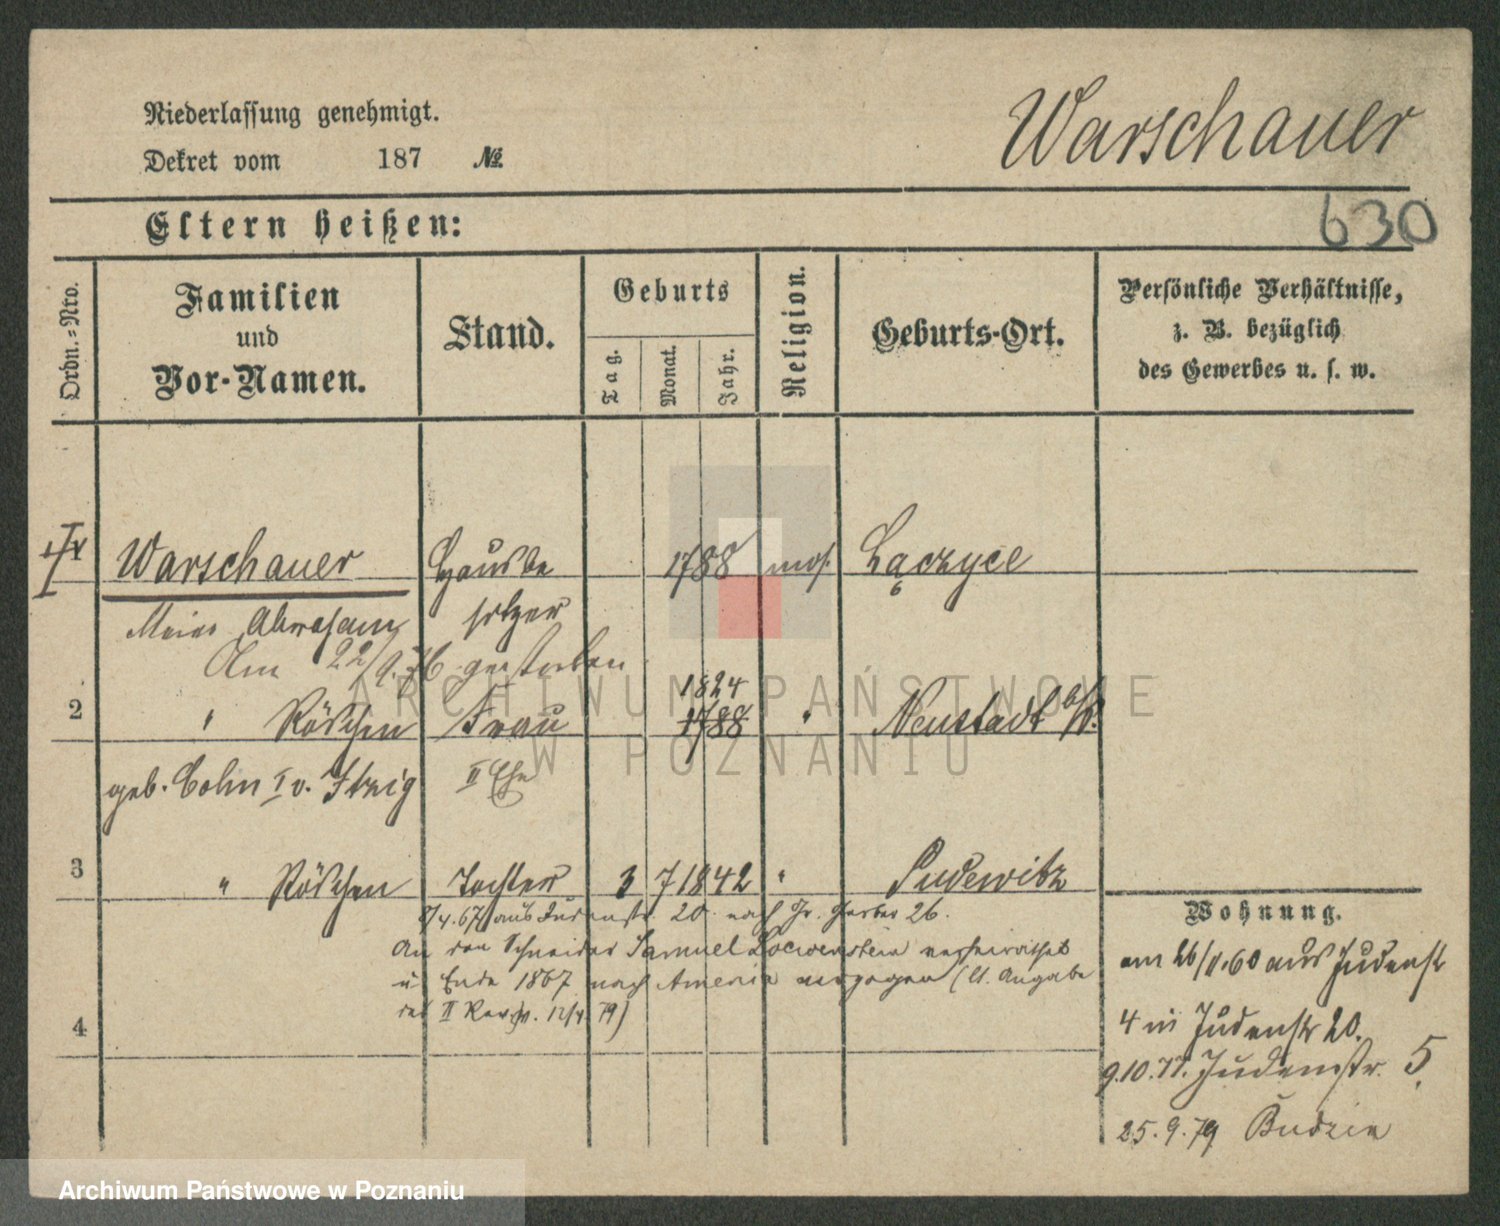 Niederlassung genehmigt.
Dekret vom 187 №
Warschauer
630
Eltern heißen:
Ordn.-Nro.
Familien
und
Vor-Namen.
Stand.
Geburts
Tag.
Monat.
Jahr.
Religion.
Geburts-Ort.
Persönliche Verhältnisse,
z. B. bezüglich
des Gewerbes u. s. w.
Warschauer Hausbe 1788 mos. Łączyce
Meier Abraham sitzer
Am 22/9.76 gestorben
1824
2 " Röschen Frau 1788 " Neustadt b/P.
geb. Cohn I v. Itzig II Ehe
3 " Röschen Tochter 3 7 1842 " Pudewitz
7/4.67 aus Judenstr. 20 nach Gr. Gerber 26.
An den Schneider Samuel Loewenstein verheirathet
u Ende 1867 nach America verzogen (lt. Angabe
des II Rev. v. 12/4 79)
4
Wohnung.
am 26/ .60 aus Judenstr
4 in Judenstr 20.
9.10.77. Judenstr. 5.
25.9.79 Budzin
ARCHIWUM PAŃSTWOWE
W POZNANIU
Archiwum Państwowe w Poznaniu